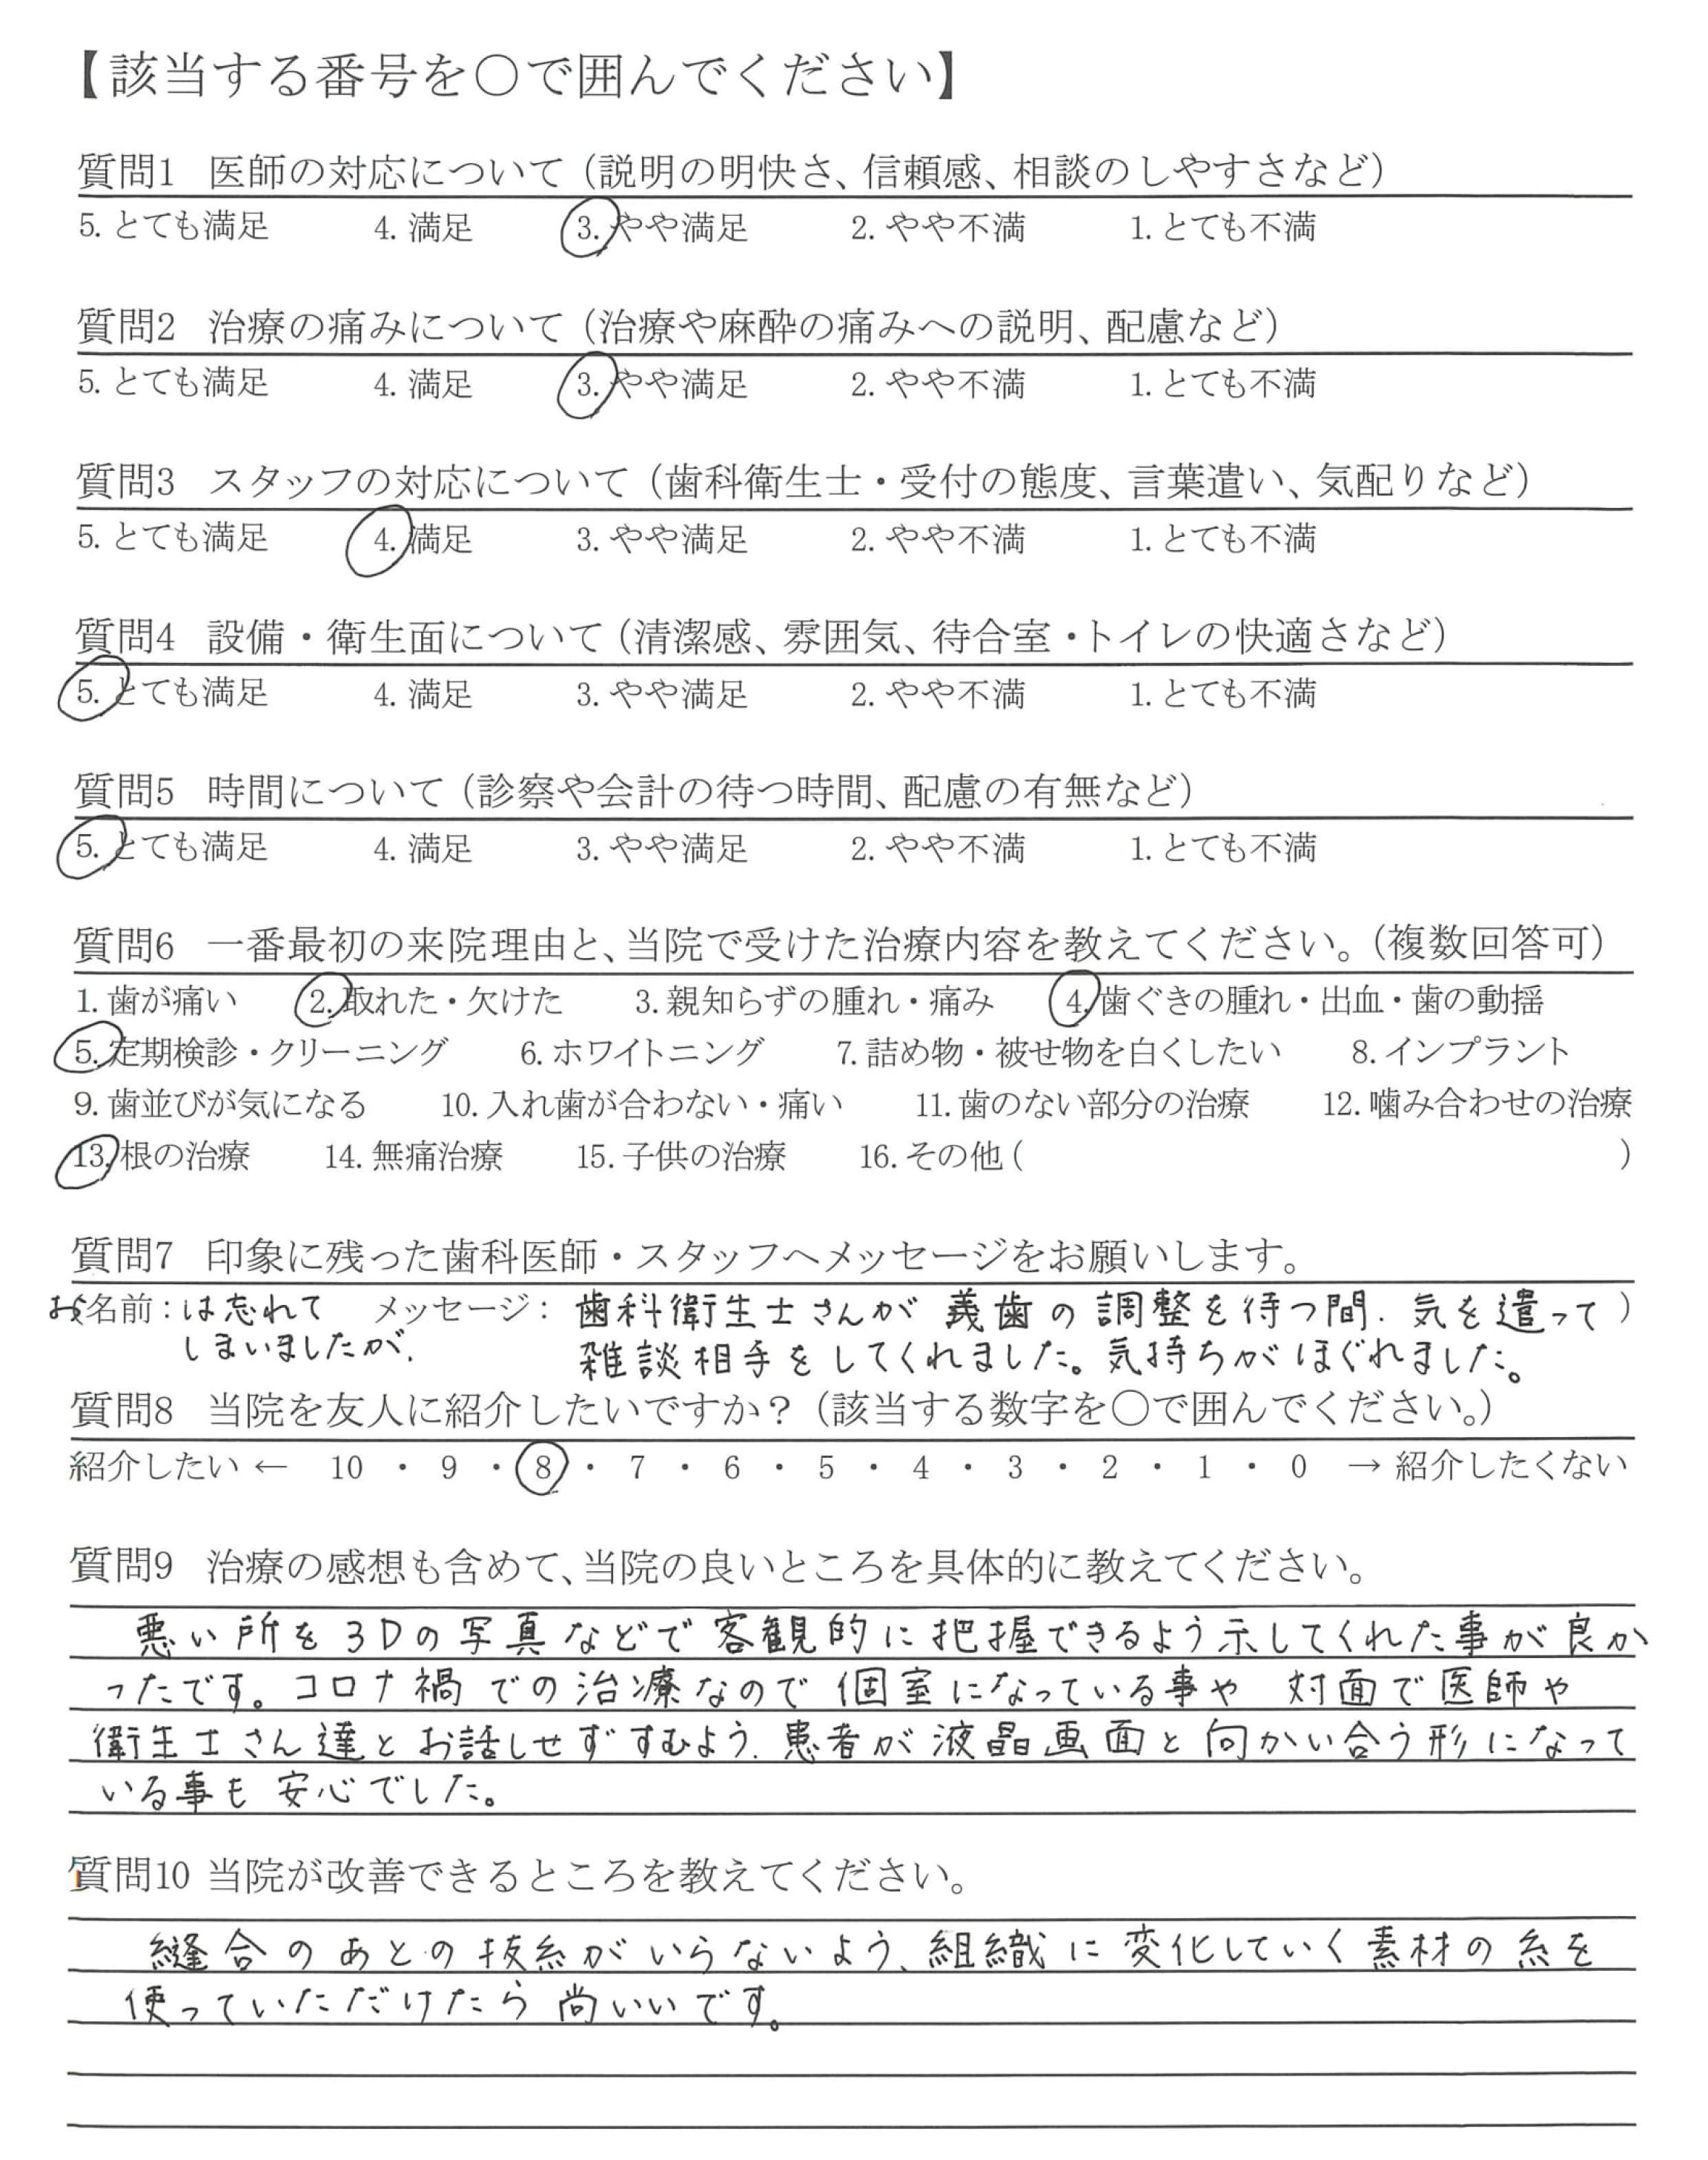 【該当する番号を○で囲んでください】
質問1 医師の対応について（説明の明快さ、信頼感、相談のしやすさなど）
5. とても満足 4. 満足 3. やや満足 2. やや不満 1. とても不満
質問2 治療の痛みについて（治療や麻酔の痛みへの説明、配慮など）
5. とても満足 4. 満足 3. やや満足 2. やや不満 1. とても不満
質問3 スタッフの対応について（歯科衛生士・受付の態度、言葉遣い、気配りなど）
5. とても満足 4. 満足 3. やや満足 2. やや不満 1. とても不満
質問4 設備・衛生面について（清潔感、雰囲気、待合室・トイレの快適さなど）
5. とても満足 4. 満足 3. やや満足 2. やや不満 1. とても不満
質問5 時間について（診察や会計の待つ時間、配慮の有無など）
5. とても満足 4. 満足 3. やや満足 2. やや不満 1. とても不満
質問6 一番最初の来院理由と、当院で受けた治療内容を教えてください。（複数回答可）
1. 歯が痛い 2. 取れた・欠けた 3. 親知らずの腫れ・痛み 4. 歯ぐきの腫れ・出血・歯の動揺
5. 定期検診・クリーニング 6. ホワイトニング 7. 詰め物・被せ物を白くしたい 8. インプラント
9. 歯並びが気になる 10. 入れ歯が合わない・痛い 11. 歯のない部分の治療 12. 噛み合わせの治療
13. 根の治療 14. 無痛治療 15. 子供の治療 16. その他（ ）
質問7 印象に残った歯科医師・スタッフへメッセージをお願いします。
お名前：は忘れて メッセージ： 歯科衛生士さんが義歯の調整を待つ間、気を遣って ）
しまいましたが、 雑談相手をしてくれました。気持ちがほぐれました。
質問8 当院を友人に紹介したいですか？（該当する数字を○で囲んでください。）
紹介したい ← 10 ・ 9 ・ 8 ・ 7 ・ 6 ・ 5 ・ 4 ・ 3 ・ 2 ・ 1 ・ 0 → 紹介したくない
質問9 治療の感想も含めて、当院の良いところを具体的に教えてください。
悪い所を3Dの写真などで客観的に把握できるよう示してくれた事が良か
ったです。コロナ禍での治療なので個室になっている事や 対面で医師や
衛生士さん達とお話しせずすむよう、患者が液晶画面と向かい合う形になって
いる事も安心でした。
質問10 当院が改善できるところを教えてください。
縫合のあとの抜糸がいらないよう、組織に変化していく素材の糸を
使っていただけたら尚いいです。